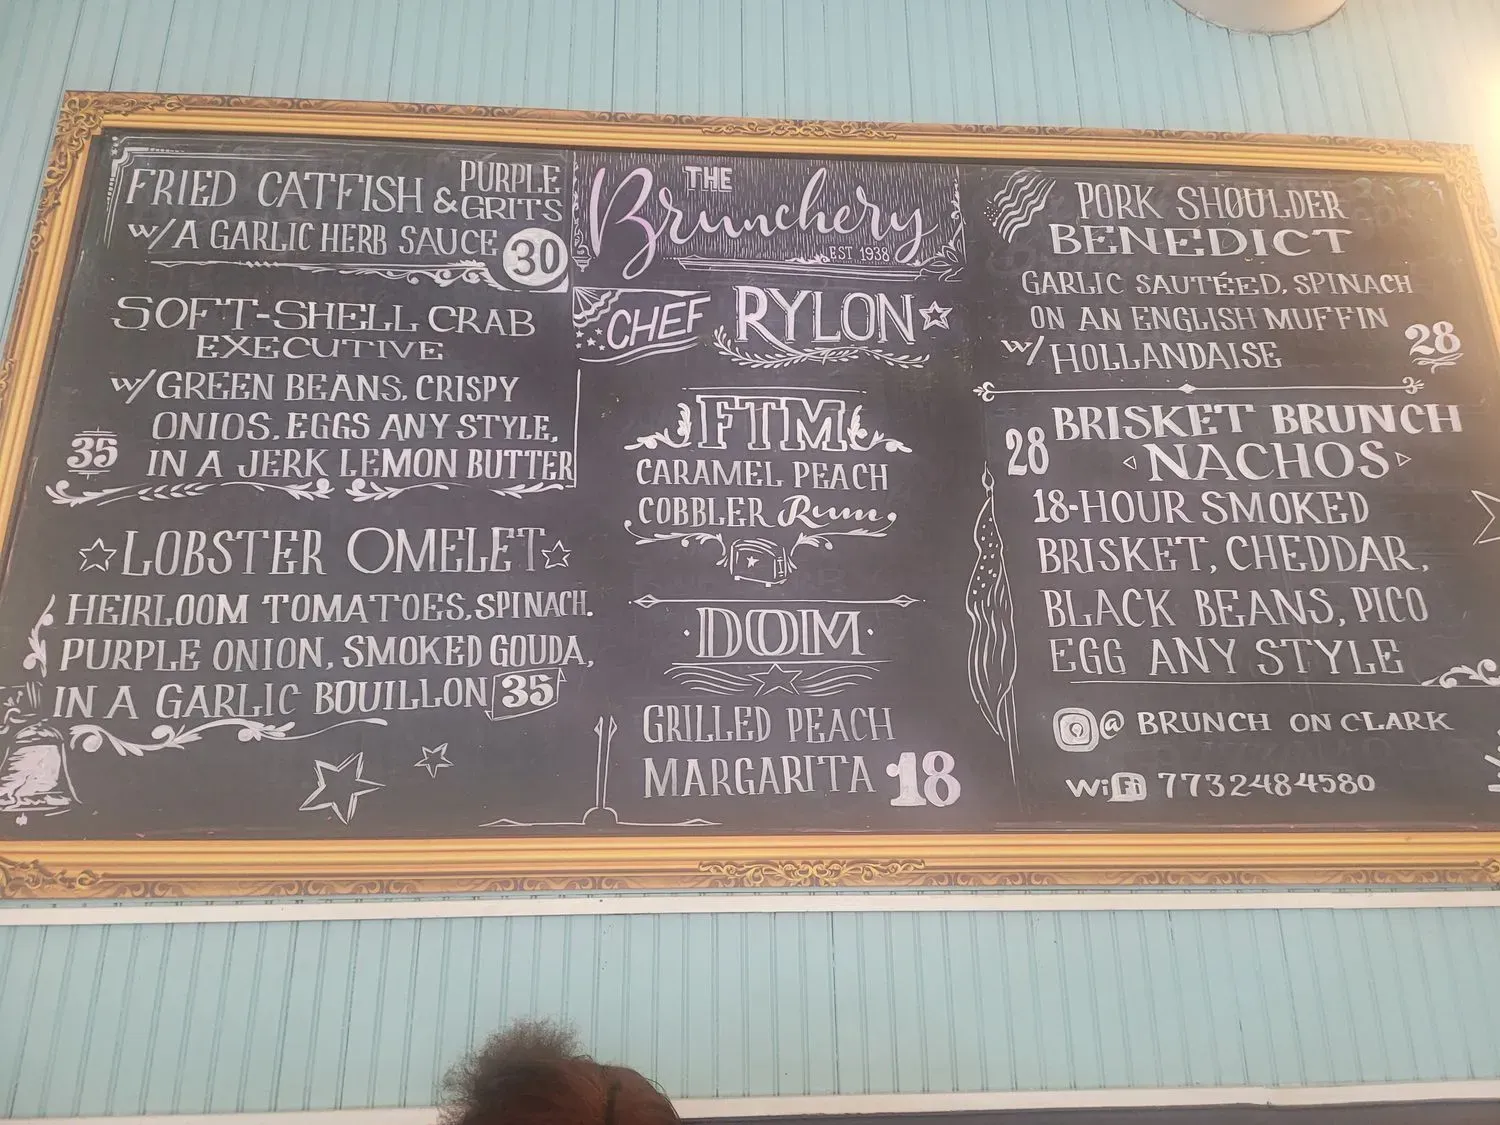 FRIED CATFISH & PURPLE GRITS
W/A GARLIC HERB SAUCE 30
SOFT-SHELL CRAB
EXECUTIVE
W/ GREEN BEANS, CRISPY
ONIOS, EGGS ANY STYLE,
35 IN A JERK LEMON BUTTER
LOBSTER OMELET
HEIRLOOM TOMATOES, SPINACH.
PURPLE ONION, SMOKED GOUDA,
IN A GARLIC BOUILLON 35
THE
Brunchery
EST 1938
CHEF RYLON
FTM
CARAMEL PEACH
COBBLER Rum
DOM
GRILLED PEACH
MARGARITA 18
PORK SHOULDER
BENEDICT
GARLIC SAUTÉED, SPINACH
ON AN ENGLISH MUFFIN
W/ HOLLANDAISE 28
28 BRISKET BRUNCH
NACHOS
18-HOUR SMOKED
BRISKET, CHEDDAR,
BLACK BEANS, PICO
EGG ANY STYLE
@ BRUNCH ON CLARK
WiFi 7732484580